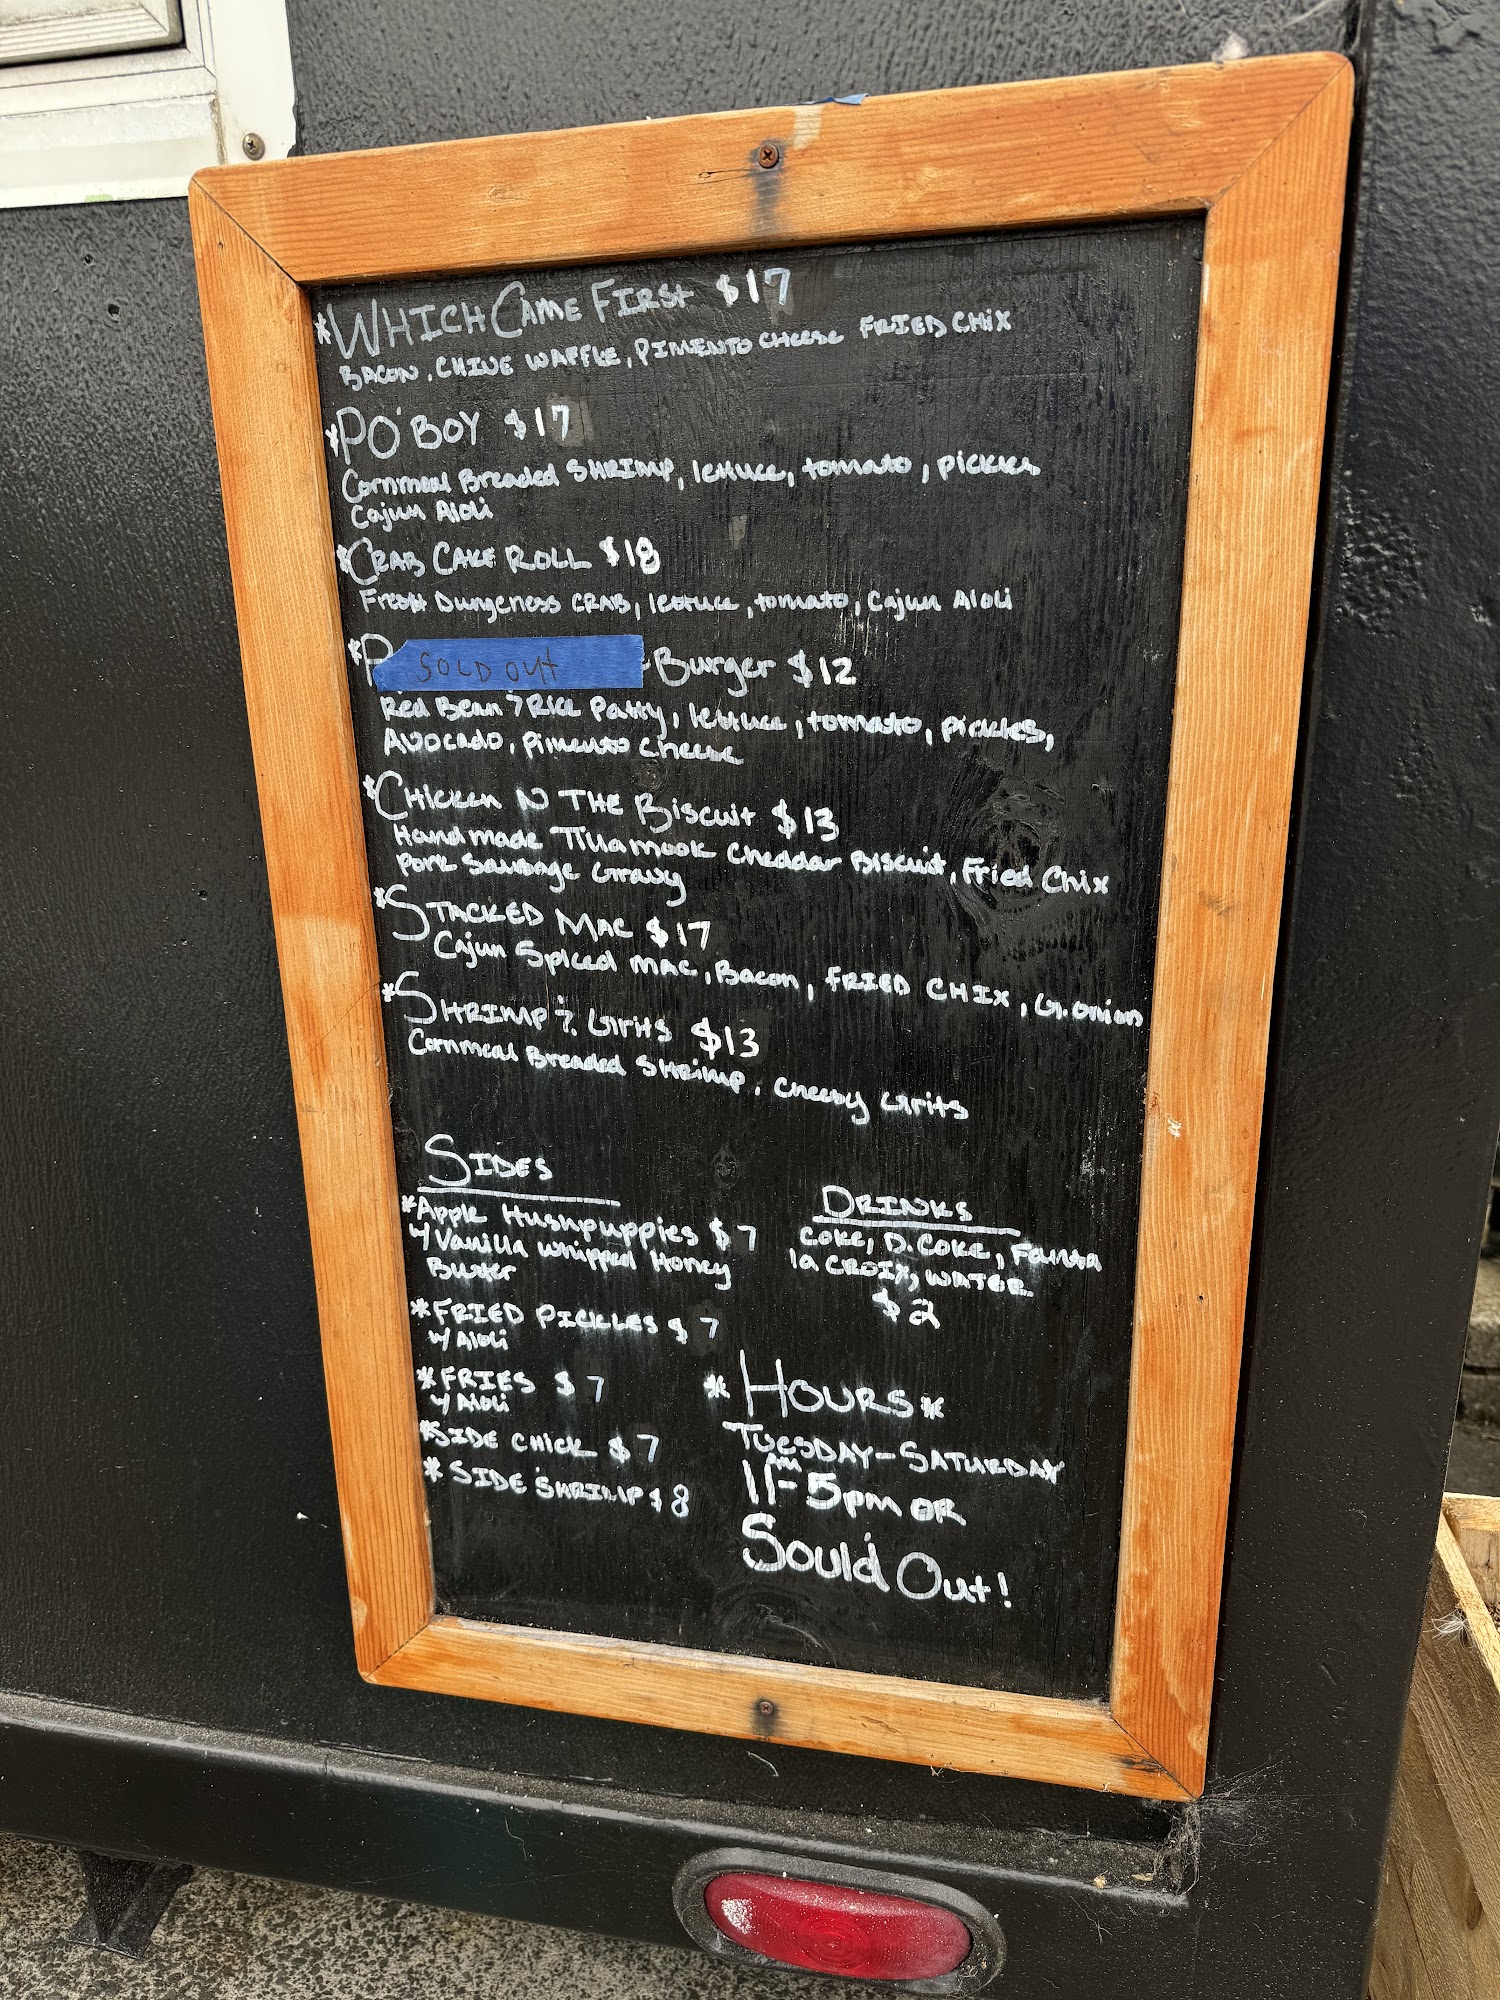 *WHICH CAME FIRST $17
BACON, CHIVE WAFFLE, PIMENTO CHEESE FRIED CHIX
*PO'BOY $17
Cornmeal Breaded SHRIMP, lettuce, tomato, pickles
Cajun Aioli
*CRAB CAKE ROLL $18
Fresh Dungeness CRAB, lettuce, tomato, Cajun Aioli
SOLD OUT Burger $12
Red Bean & Rice Patty, lettuce, tomato, pickles,
Avocado, pimento cheese
*Chicken N THE Biscuit $13
Handmade Tillamook Cheddar Biscuit, Fried Chix
Pork Sausage Gravy
*STACKED MAC $17
Cajun Spiced MAC, Bacon, FRIED CHIX, G. Onion
*SHRIMP & Grits $13
Cornmeal Breaded SHRIMP, cheesy Grits
SIDES
*Apple Hushpuppies $7
w/ Vanilla Whipped Honey
Butter
*FRIED PICKLES $7
w/ Aioli
*FRIES $7
w/ Aioli
*SIDE CHICK $7
*SIDE SHRIMP $8
DRINKS
COKE, D. COKE, Fanta
la CROIX, WATER
$2
*HOURS*
TUESDAY-SATURDAY
11AM-5pm OR
Sould Out!